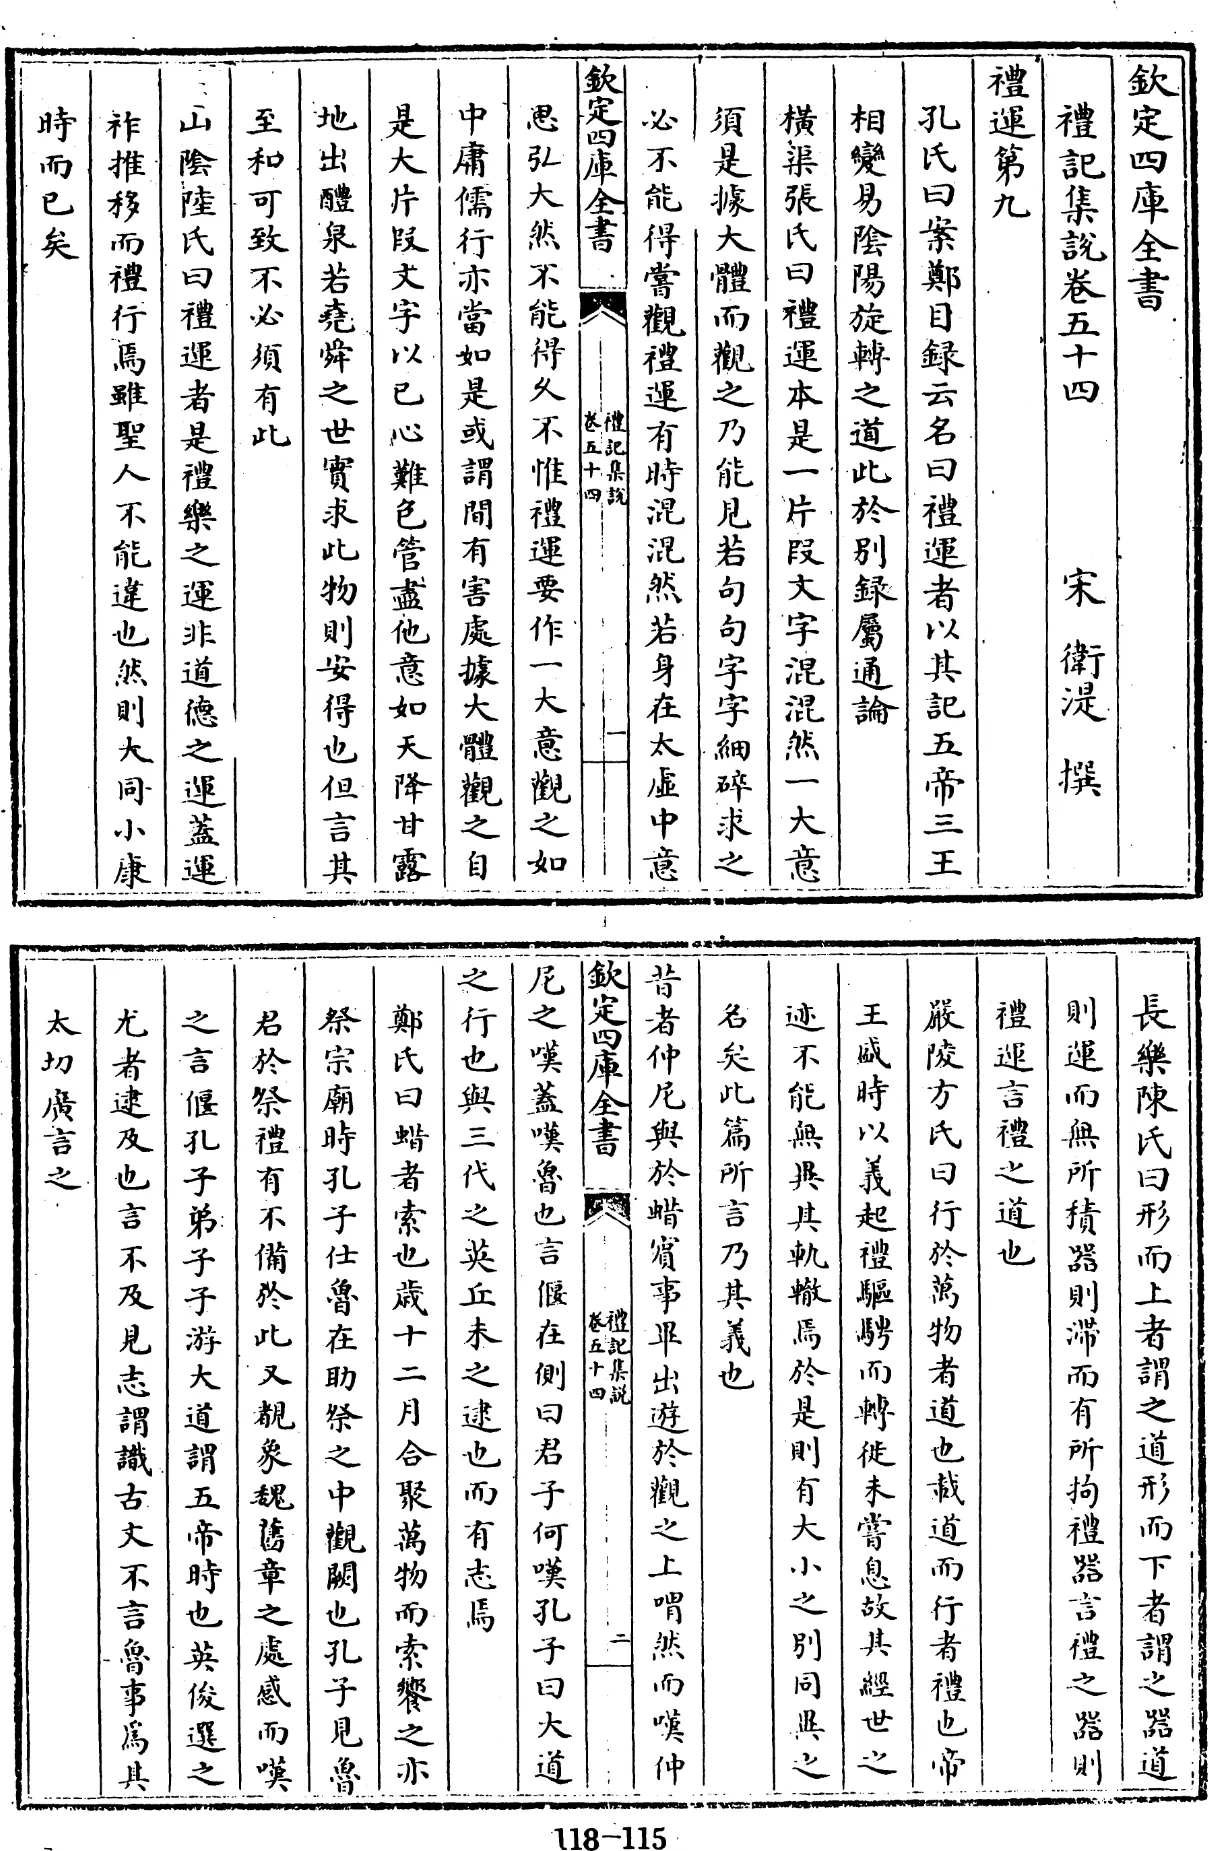 欽定四庫全書
禮記集說卷五十四 宋 衛湜 撰
禮運第九
孔氏曰案鄭目録云名曰禮運者以其記五帝三王
相變易陰陽旋轉之道此於別録屬通論
橫渠張氏曰禮運本是一片段文字混混然一大意
須是據大體而觀之乃能見若句句字字細碎求之
必不能得嘗觀禮運有時混混然若身在太虛中意
欽定四庫全書
禮記集說
卷五十四
一
思弘大然不能得久不惟禮運要作一大意觀之如
中庸儒行亦當如是或謂間有害處據大體觀之自
是大片段文字以已心難色管盡他意如天降甘露
地出醴泉若堯舜之世實求此物則安得也但言其
至和可致不必須有此
山陰陸氏曰禮運者是禮樂之運非道德之運蓋運
祚推移而禮行焉雖聖人不能違也然則大同小康
時而已矣
長樂陳氏曰形而上者謂之道形而下者謂之器道
則運而無所積器則滯而有所拘禮器言禮之器則
禮運言禮之道也
嚴陵方氏曰行於萬物者道也載道而行者禮也帝
王盛時以義起禮驅騁而轉徙未嘗息故其經世之
迹不能無異其軌轍焉於是則有大小之別同異之
名矣此篇所言乃其義也
昔者仲尼與於蜡賓事畢出遊於觀之上喟然而嘆仲
欽定四庫全書
禮記集說
卷五十四
二
尼之嘆蓋嘆魯也言偃在側曰君子何嘆孔子曰大道
之行也與三代之英丘未之逮也而有志焉
鄭氏曰蜡者索也歲十二月合聚萬物而索饗之亦
祭宗廟時孔子仕魯在助祭之中觀闕也孔子見魯
君於祭禮有不備於此又覩象魏舊章之處感而嘆
之言偃孔子弟子子游大道謂五帝時也英俊選之
尤者逮及也言不及見志謂識古文不言魯事爲其
太切廣言之
118-115